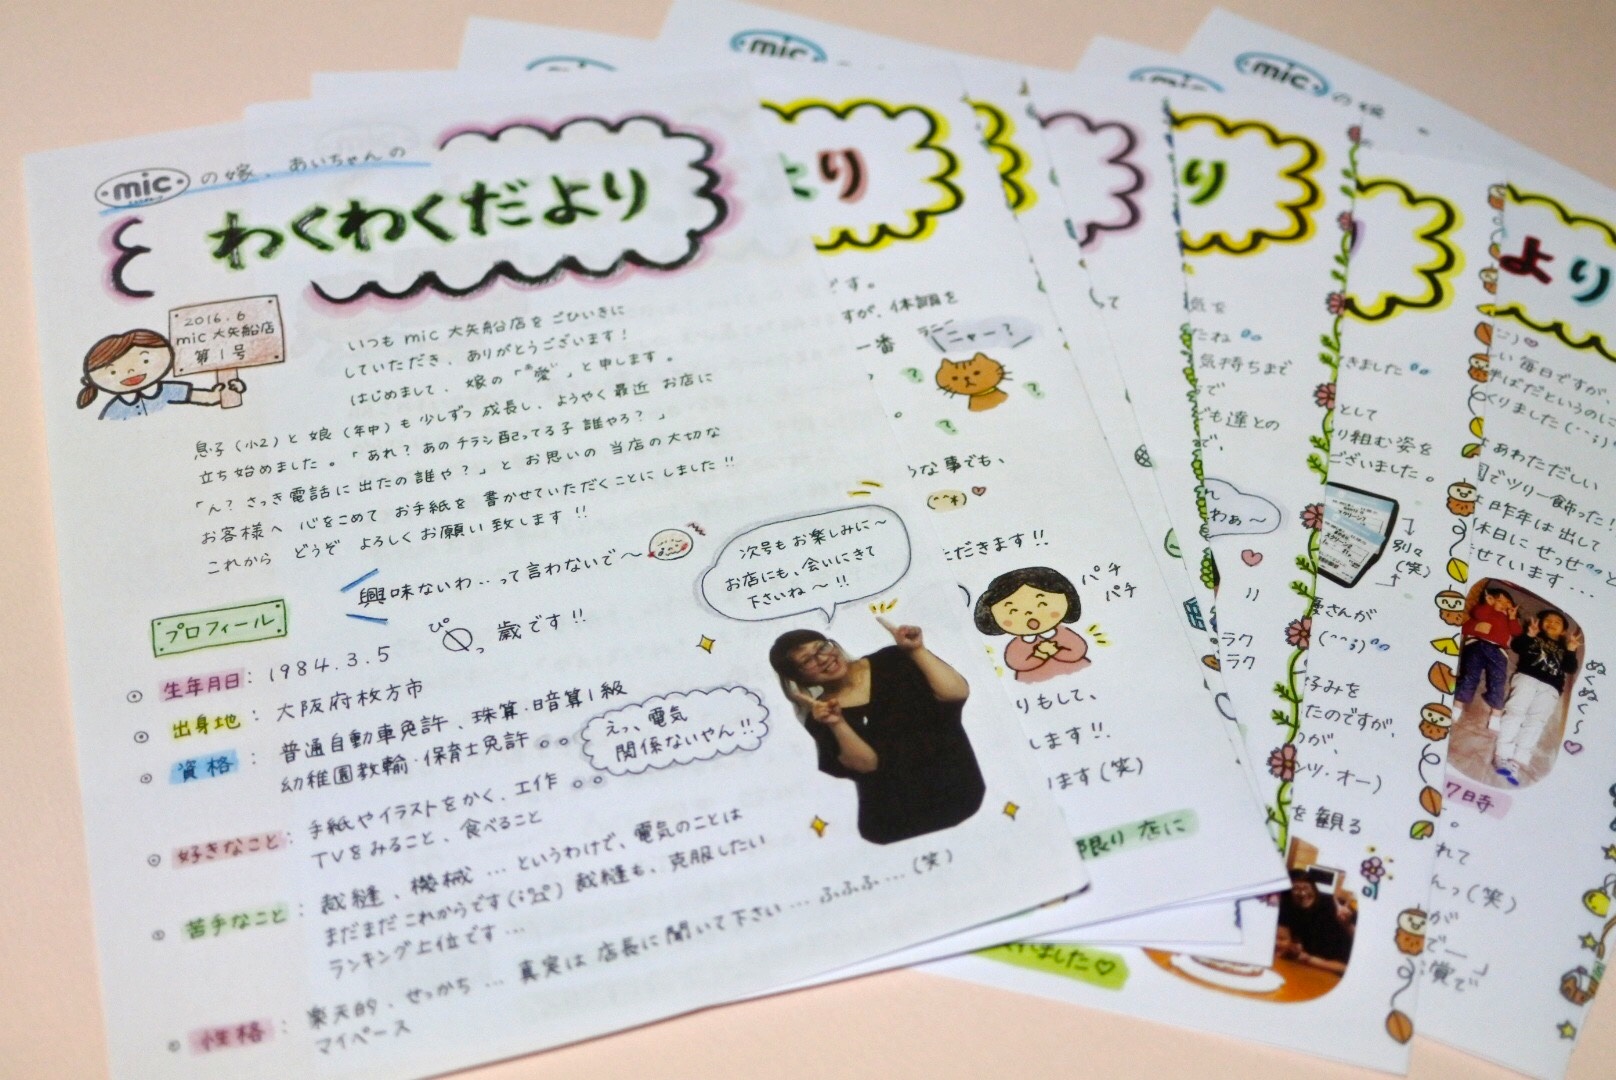 mic の嫁、あいちゃんの
わくわくだより
2016.6
mic 大矢船店
第1号
いつも mic 大矢船店を ごひいきに
していただき、ありがとうございます!
はじめまして、嫁の「愛」と申します。
息子(小2)と 娘(年中)も 少しずつ 成長し、ようやく最近 お店に
立ち始めました。「あれ?あのチラシ配ってる子 誰やろ?」
「ん?さっき電話に出たの誰や?」と お思いの 当店の大切な
お客様へ 心をこめて お手紙を 書かせていただくことにしました!!
これから どうぞ よろしくお願い致します!!
興味ないわ‥って言わないで〜
プロフィール
生年月日: 1984.3.5
歳です!!
出身地: 大阪府枚方市
資格: 普通自動車免許、珠算・暗算1級
幼稚園教輸・保育士免許
えっ、電気
関係ないやん!!
好きなこと: 手紙やイラストをかく、工作
TVをみること、食べること
苦手なこと: 裁縫、機械…というわけで、電気のことは
まだまだこれからです 裁縫も、克服したい
ランキング上位です…
性格: 楽天的、せっかち…真実は店長に聞いて下さい…ふふふ…(笑)
マイペース
次号もお楽しみに〜
お店にも、会いにきて
下さいね〜!!
mic
より
です。
すが、体調を
一番
ニャー?
な事でも、
(^^*)
ただきます!!
パチ
パチ
りもして、
します!!
ます(笑)
限り 店に
ました♡
mic
り
気持ちまで
も達との
わぁ〜
ラク
ラク
きました
として
り組む姿を
ございました。
別々
(笑)
さんが
(^^;)
好みを
たのですが、
ンツ・オー)
を観る
mic の嫁
より
毎日ですが、
くりました(^^;)
あわただしい
でツリー飾った!
昨年は出して
休日にせっせと
せています…
ぬくぬく〜
7日寺
れて
んっ(笑)
が
賞で